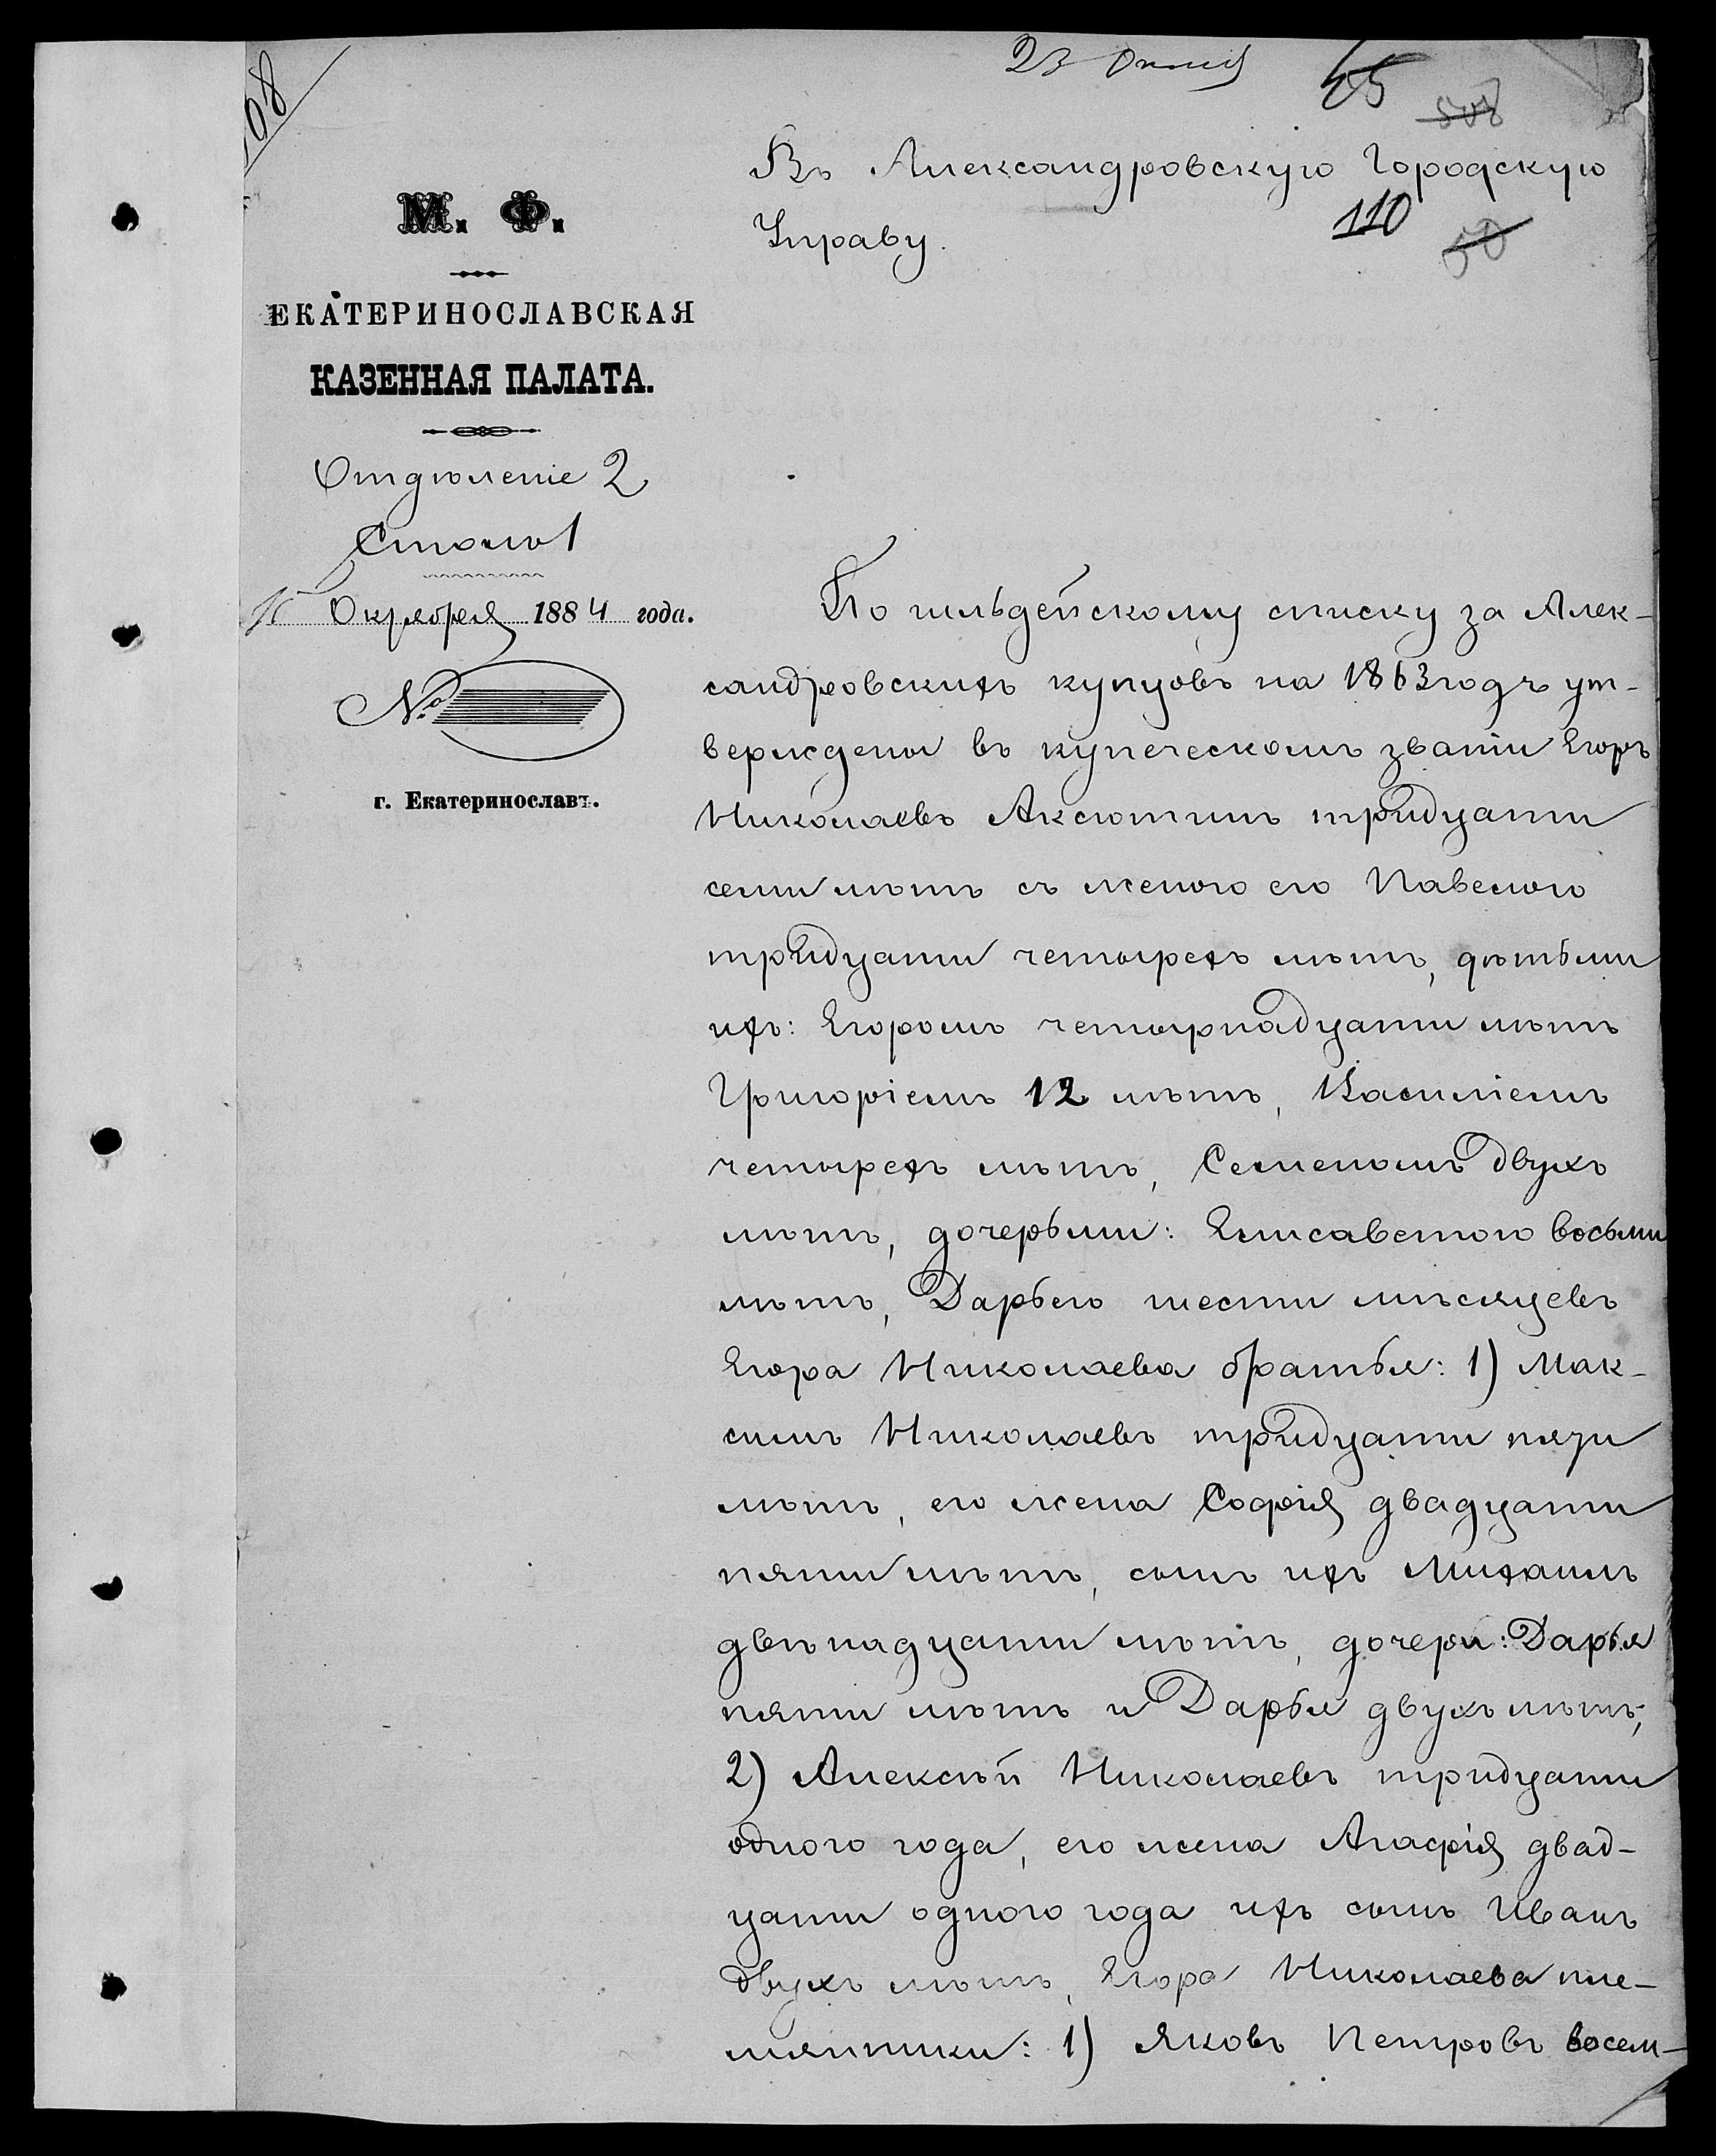 23 Октяб
65
508
98
Въ Александровскую Городскую
110
50
Управу.
М. Ф.
ЕКАТЕРИНОСЛАВСКАЯ
КАЗЕННАЯ ПАЛАТА.
Отдѣленіе 2
Столъ 1
Октября 1884 года.
№
г. Екатеринославъ.
По гильдейскому списку за Алек-
сандровскихъ купцовъ на 1863 годъ ут-
верждены въ купеческомъ званіи Егоръ
Николаевъ Аксютинъ тридцати
семи лѣтъ съ женою его Павелою
тридцати четырехъ лѣтъ, дѣтьми
ихъ: Егоромъ четырнадцати лѣтъ
Григоріемъ 12 лѣтъ, Василіемъ
четырехъ лѣтъ, Семеномъ двухъ
лѣтъ, дочерьми: Елисаветою восьми
лѣтъ, Дарьею шести мѣсяцевъ
Егора Николаева братья: 1) Мак-
симъ Николаевъ тридцати пяти
лѣтъ, его жена Софія двадцати
пяти лѣтъ, сынъ ихъ Михаилъ
двѣнадцати лѣтъ, дочери: Дарья
пяти лѣтъ и Дарья двухъ лѣтъ;
2) Алексѣй Николаевъ тридцати
одного года, его жена Агафія двад-
цати одного года ихъ сынъ Иванъ
двухъ лѣтъ, Егора Николаева пле-
мянники: 1) Яковъ Петровъ восем-